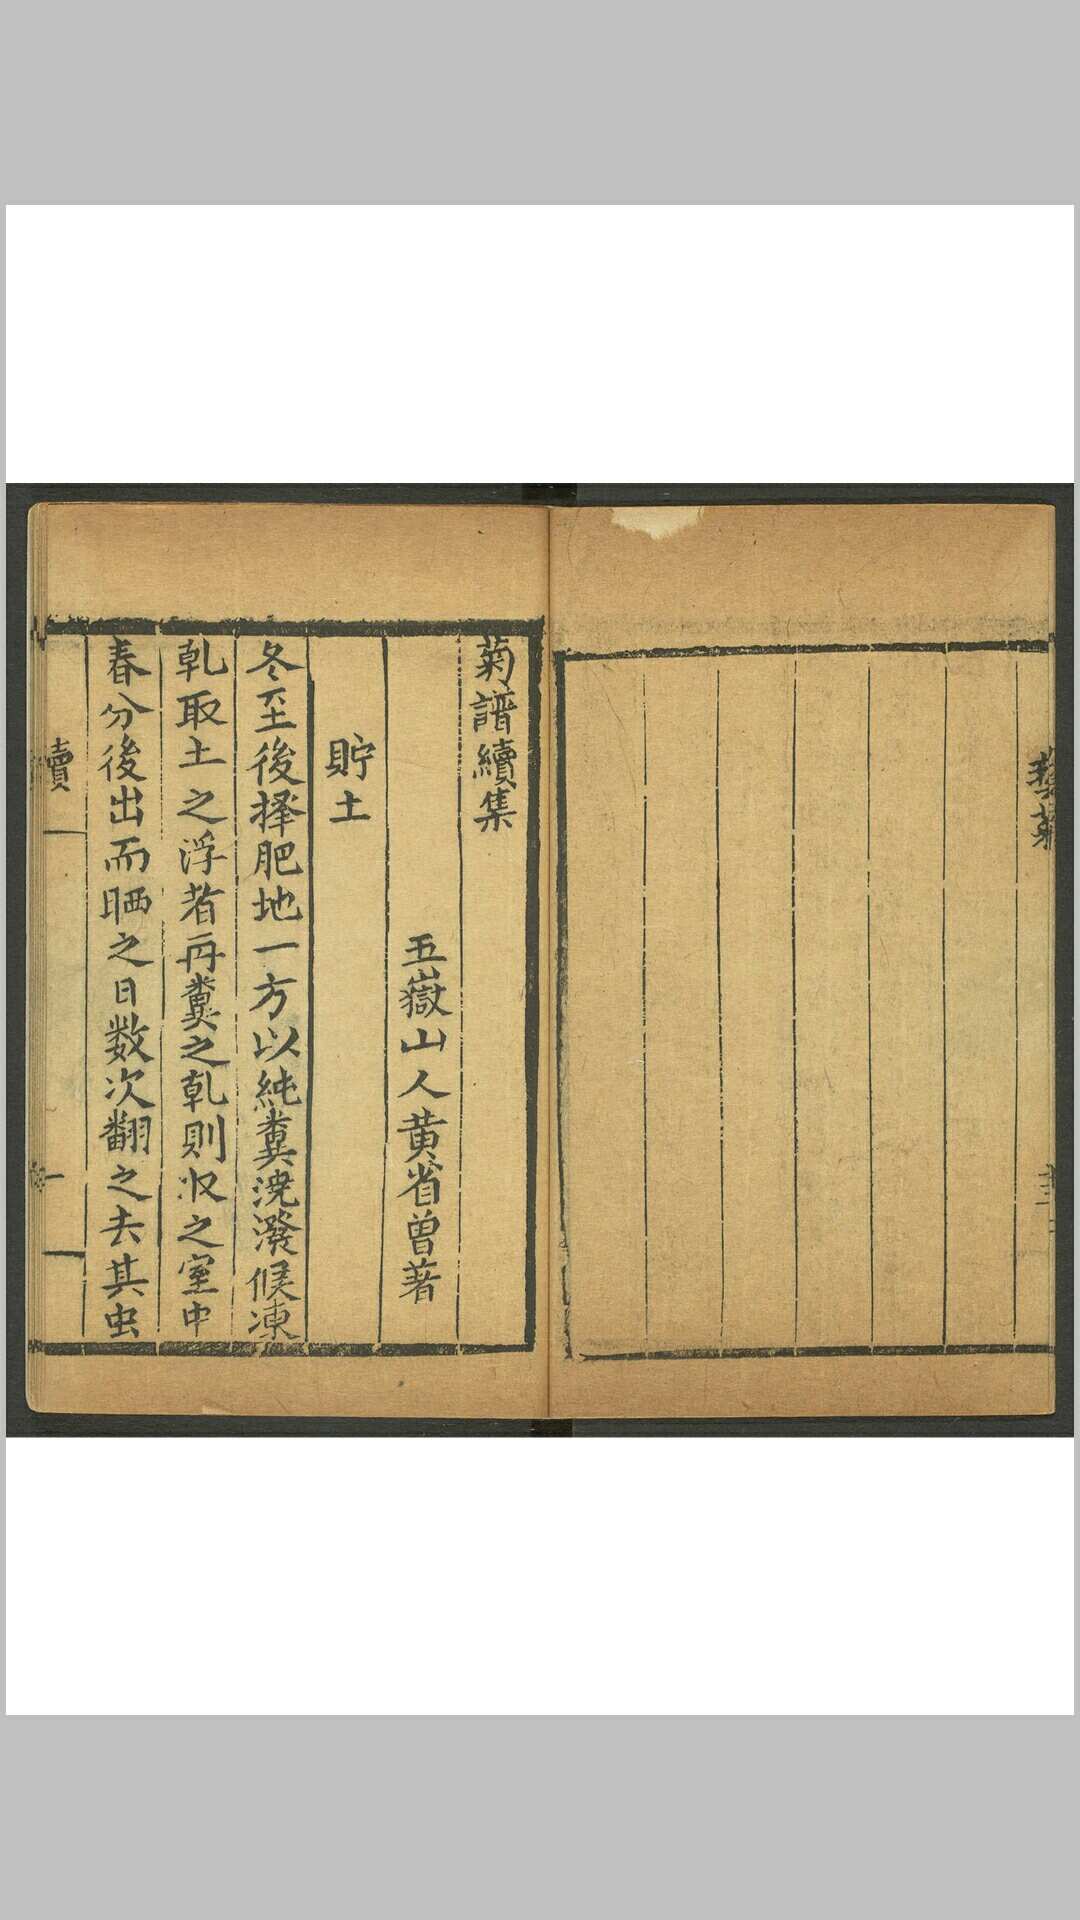 藝菊
菊譜續集
五嶽山人黄省曾著
貯土
冬至後择肥地一方以純糞澆潑候凍
乹取土之浮者再糞之乹則収之室中
春分後出而晒之日数次翻之去其虫
續